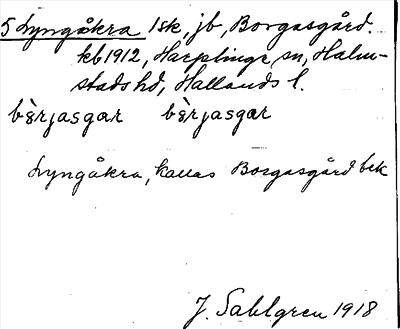 5 Lyngåkra 1sk, jb, Borgasgård.
kb 1912, Harplinge sn, Halm-
stads hd, Hallands l.
bèrjasgar bèrjasgar
Lyngåkra, kallas Borgasgård bek
J. Sahlgren 1918